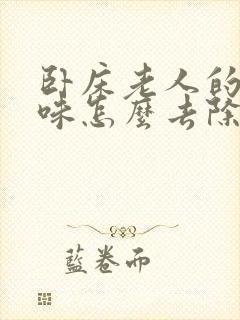 卧床老人的
味怎麼去除
藍卷而